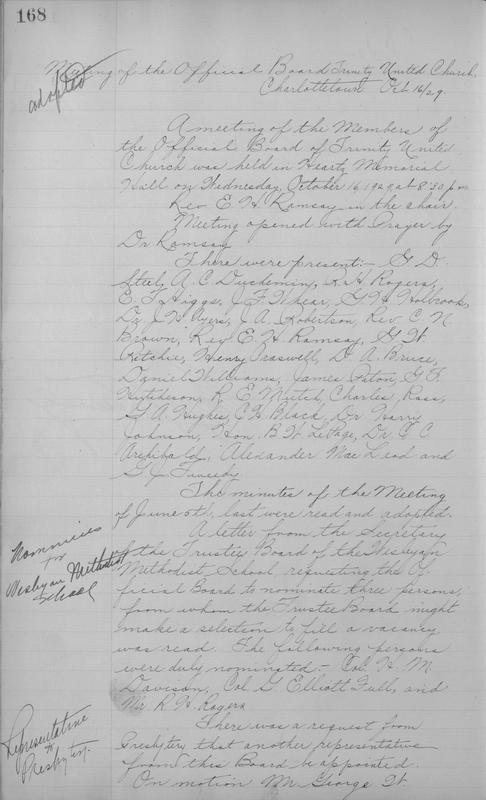 168
Meeting of the Official Board Trinity United Church,
Charlottetown Oct 16/29.
adopted
A meeting of the Members of
the Official Board of Trinity United
Church was held in Heartz Memorial
Hall on Wednesday, October 16 1929 at 8:30 p.m
Rev E. H. Ramsay in the chair.
Meeting opened with Prayer by
Dr Ramsay
There were present:- G D.
Steel, A. C. Duchemin, R. H. Rogers,
E. T. Higgs, J. F. Whear, G H Holbrook,
Dr J. H. Ayers, J. A. Robertson, Rev C. N.
Brown, Rev E. H. Ramsay, G W.
Ritchie, Henry D. A. Bruce,
Daniel Williams, James Paton, G. F.
Hutcheson, R. E. Mutch, Charles Ross,
G. A. Hughes, C. H. Black, Dr. Harry
Johnson, Hon. B W. LePage, Dr. C C.
Archibald, Alexander MacLeod and
G J. Tweedy
The minutes of the Meeting
of June 5th, last were read and adopted.
Nominees
for
Wesleyan Methodist
School
A letter from the Secretary
of the Trustee Board of the Wesleyan
Methodist School, requesting the Of
ficial Board to nominate three persons,
from whom the Trustee Board might
make a selection to fill a vacancy
was read. The following persons
were duly nominated:- Col. H. M.
Davison, Col G Elliott Full, and
Mr R. H. Rogers
Representative
to
Presbytery.
There was a request from
Presbytery that another representative
from this Board be appointed.
On motion Mr. George W.